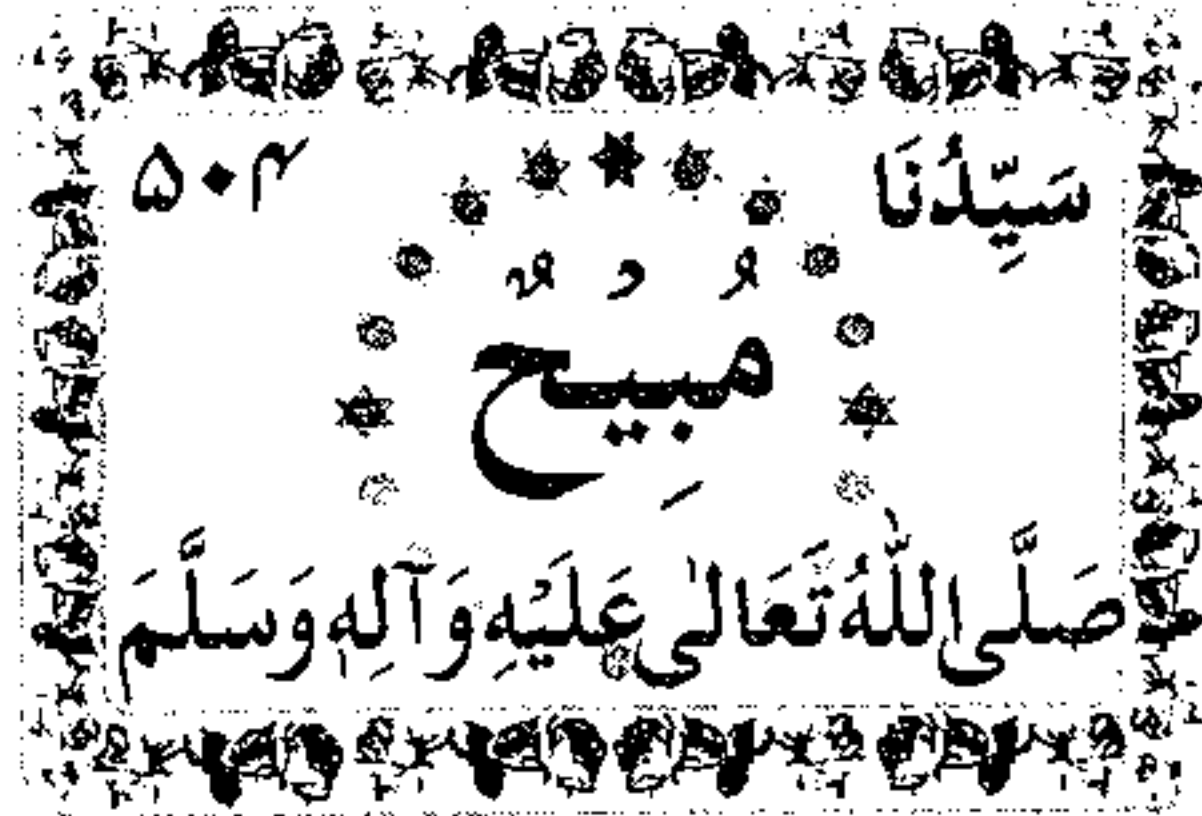 سَيِّدُنَا
۵۰۴
مُبِيْحٌ
صَلَّى اللّٰهُ تَعَالٰى عَلَيْهِ وَآلِهٖ وَسَلَّمَ